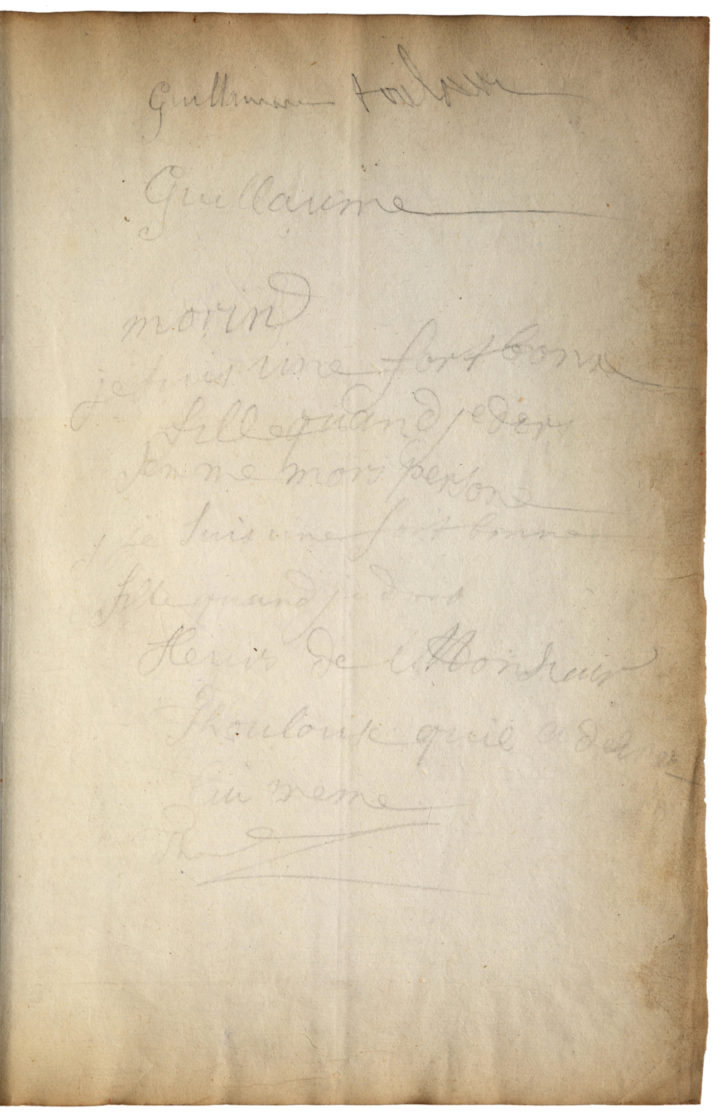 Guillaume toulouse
Guillaume
morin
je suis une fort bonne
fille quand je dors
je ne mors persone
je suis une fort bonne
fille quand je dors
de Monsieur
Thoulouse quil a
lui meme